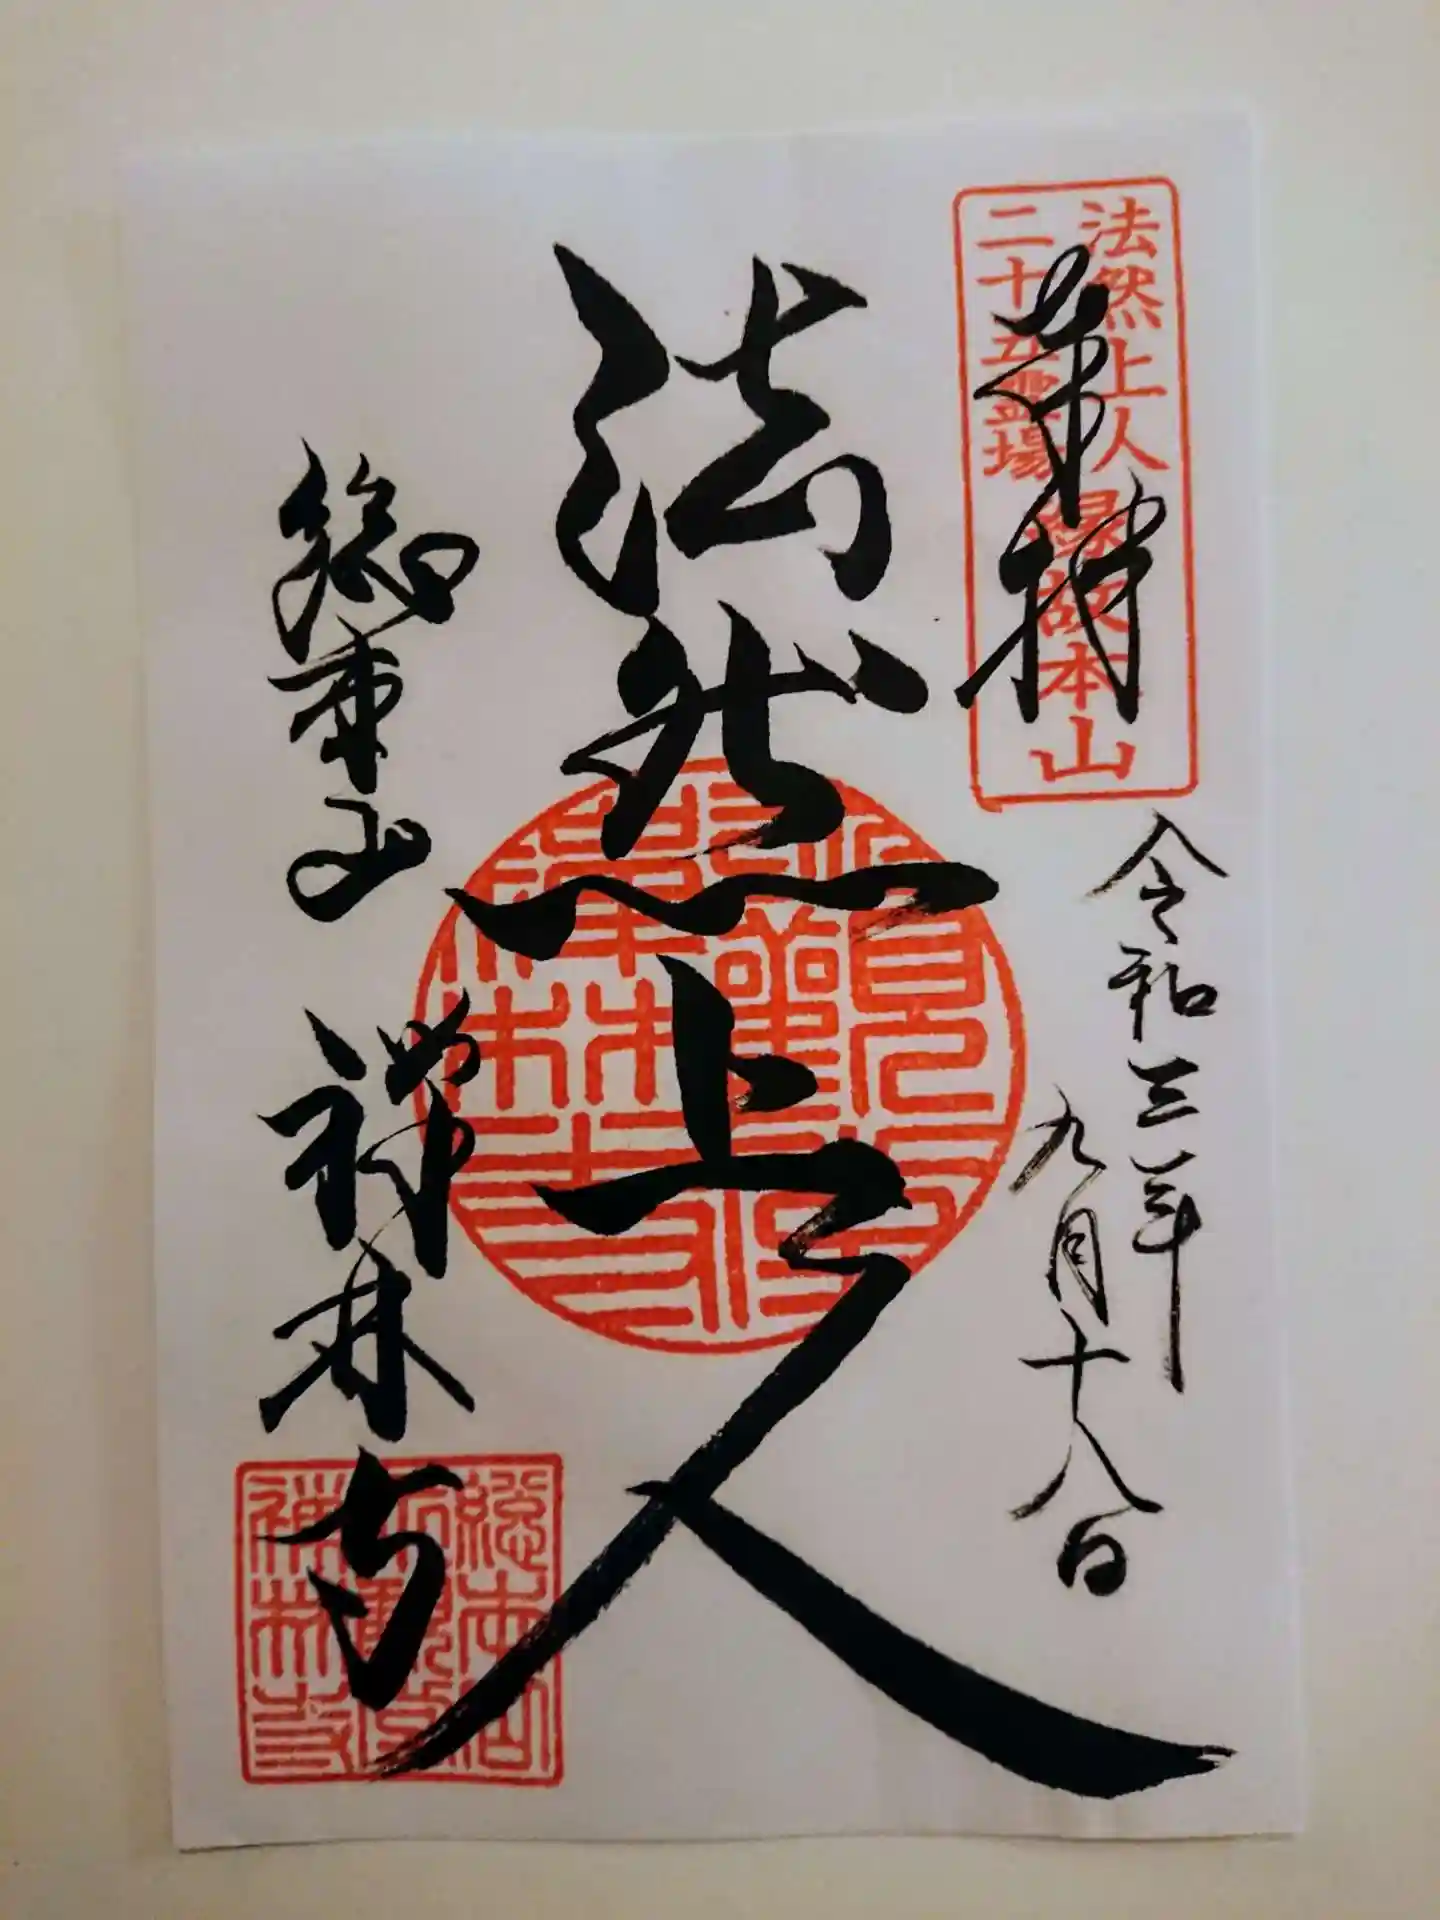 法然上人
二十五霊場
縁故本山
奉拝
令和三年
九月十八日
法然上人
総本山 禅林寺